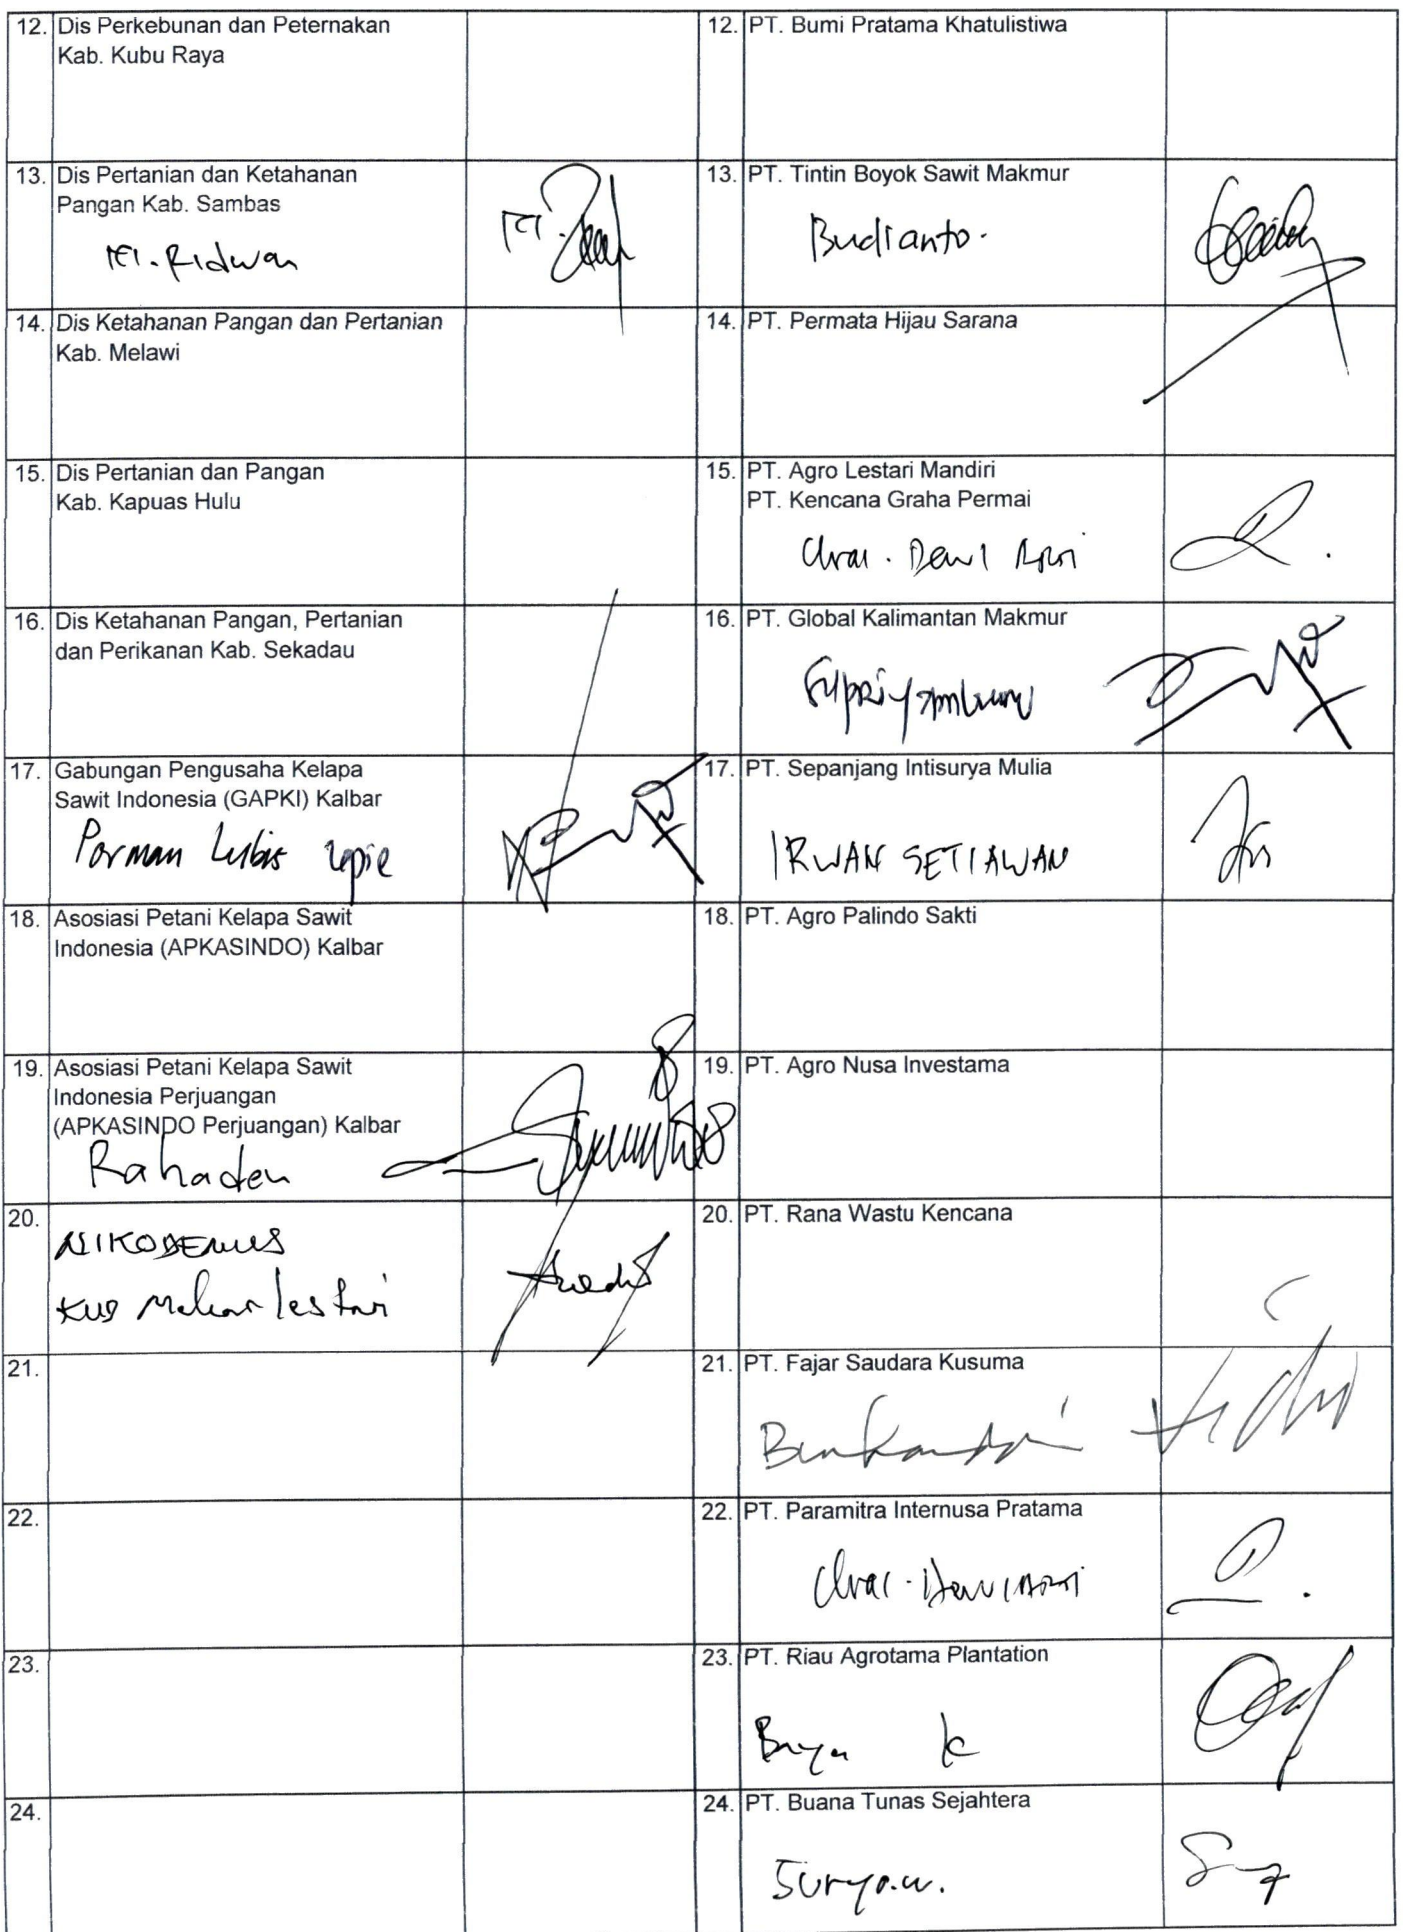 12. Dis Perkebunan dan Peternakan
Kab. Kubu Raya
12. PT. Bumi Pratama Khatulistiwa
13. Dis Pertanian dan Ketahanan
Pangan Kab. Sambas
M. Ridwan
13. PT. Tintin Boyok Sawit Makmur
Budianto.
14. Dis Ketahanan Pangan dan Pertanian
Kab. Melawi
14. PT. Permata Hijau Sarana
15. Dis Pertanian dan Pangan
Kab. Kapuas Hulu
15. PT. Agro Lestari Mandiri
PT. Kencana Graha Permai
Dewi
16. Dis Ketahanan Pangan, Pertanian
dan Perikanan Kab. Sekadau
16. PT. Global Kalimantan Makmur
17. Gabungan Pengusaha Kelapa
Sawit Indonesia (GAPKI) Kalbar
Porman Lubis
17. PT. Sepanjang Intisurya Mulia
IRWAN SETIAWAN
18. Asosiasi Petani Kelapa Sawit
Indonesia (APKASINDO) Kalbar
18. PT. Agro Palindo Sakti
19. Asosiasi Petani Kelapa Sawit
Indonesia Perjuangan
(APKASINDO Perjuangan) Kalbar
Rahaden
19. PT. Agro Nusa Investama
20. NIKODEMUS
lestari
20. PT. Rana Wastu Kencana
21.
21. PT. Fajar Saudara Kusuma
22.
22. PT. Paramitra Internusa Pratama
23.
23. PT. Riau Agrotama Plantation
K
24.
24. PT. Buana Tunas Sejahtera
Suryo.w.